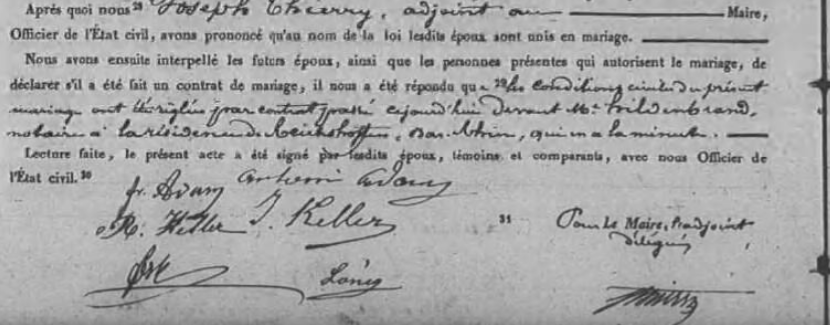 Après quoi nous 28 Joseph Thierry, adjoint au Maire,
Officier de l'État civil, avons prononcé qu'au nom de la loi lesdits époux sont unis en mariage.
Nous avons ensuite interpellé les futurs époux, ainsi que les personnes présentes qui autorisent le mariage, de
déclarer s'il a été fait un contrat de mariage, il nous a été répondu que 29 les conditions civiles du présent
mariage ont été réglées par contrat passé cejourd'hui devant Me Hildenbrand,
notaire à la résidence de Reichshoffen, Bas-Rhin, qui en a la minute.
Lecture faite, le présent acte a été signé par lesdits époux, témoins et comparants, avec nous Officier de
l'État civil. 30
fr. Adam Antoni Adam
Keller J. Keller
31 Pour le Maire, l'adjoint
délégué